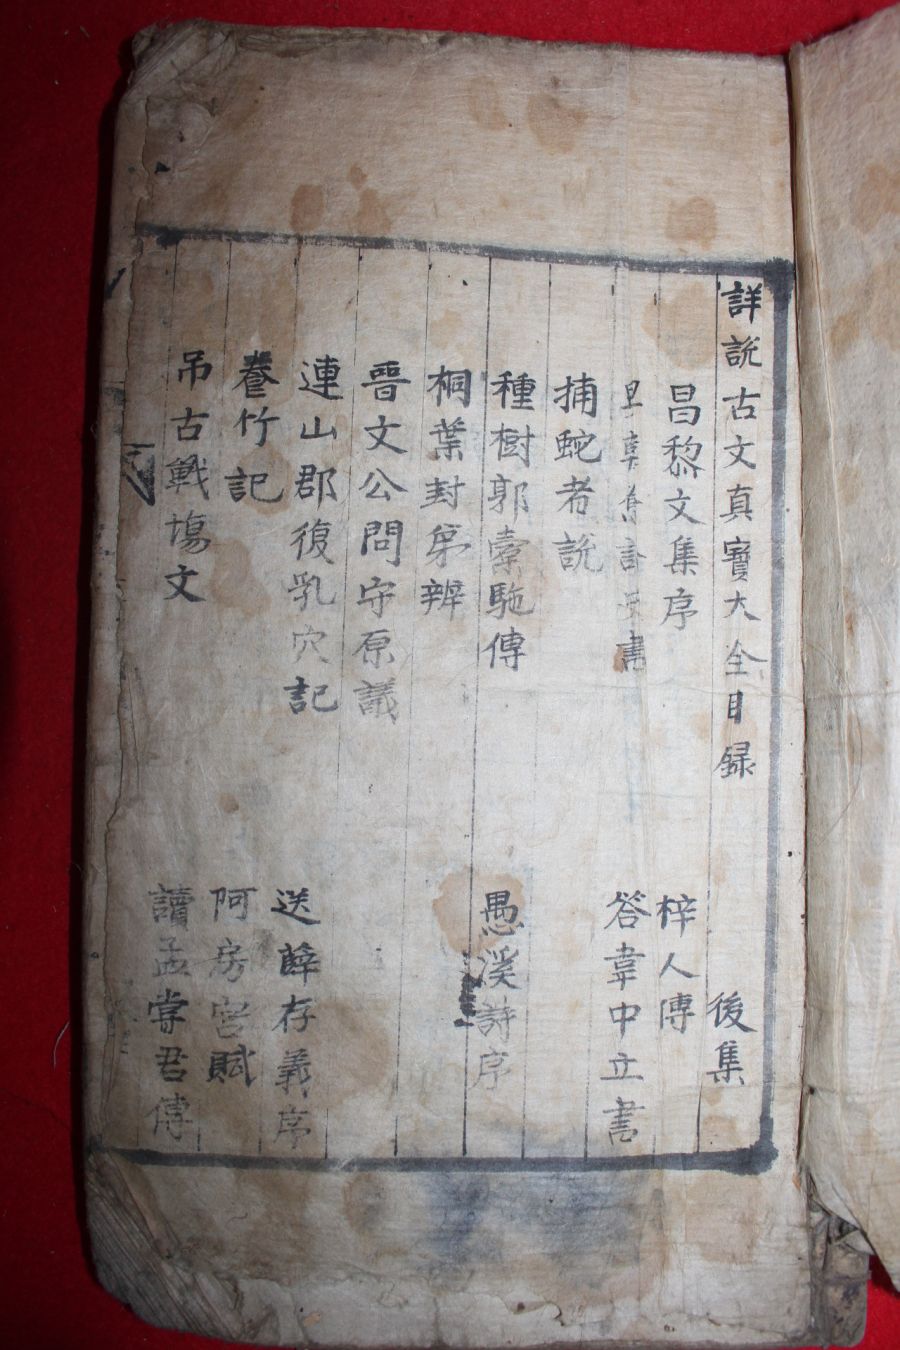 詳説古文真寶大全目録 後集
昌黎文集序 梓人傳
書 答韋中立書
捕蛇者説
種樹郭橐駞傳 愚溪詩序
桐葉封弟辨
晋文公問守原議
連山郡復乳穴記 送薛存義序
養竹記 阿房宮賦
吊古戰場文 讀孟嘗君傳